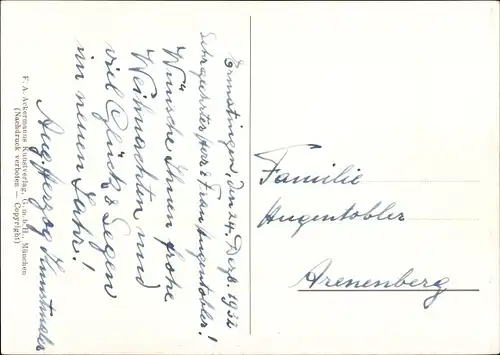 Ermatingen, den 24. Dez. 1932
Sehrgeehrter Herr & Frau Hugentobler!
Wünsche Ihnen frohe
Weihnachten und
viel Glück & Segen
im neuen Jahr!
Aug. Herzog Kunstmaler
F. A. Ackermanns Kunstverlag, G. m. b. H., München
(Nachdruck verboten — Copyright)
Familie
Hugentobler
Arenenberg